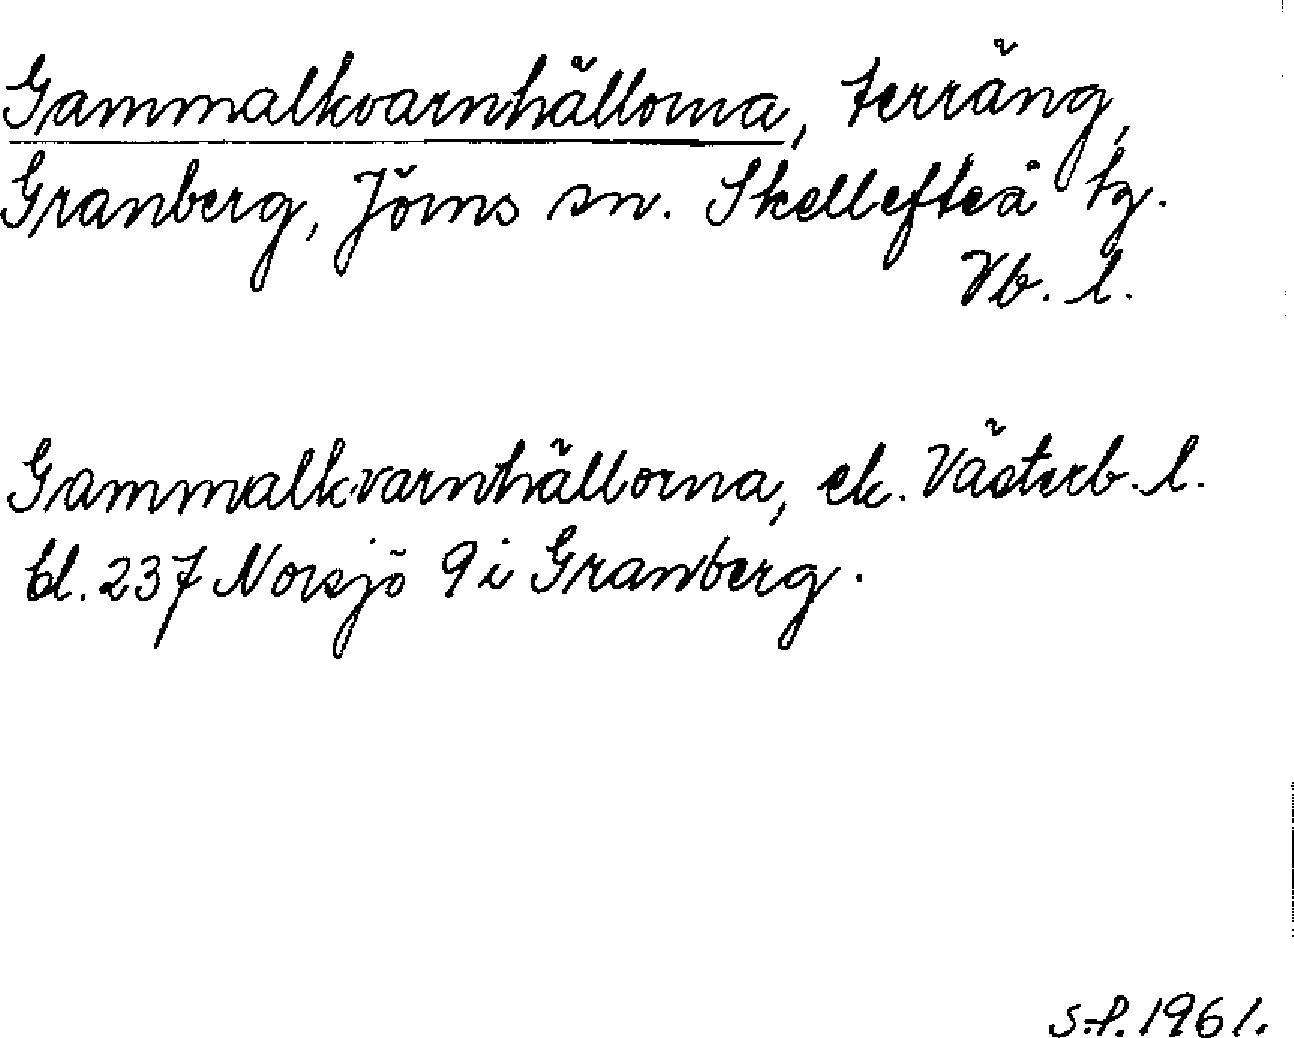 Gammalkvarnhällorna, terräng,
Granberg, Jörns sn. Skellefteå tg.
Vb. l.
Gammalkvarnhällorna, ek. Västerb. l.
bl. 237 Norsjö 9 i Granberg.
S.P. 1961.